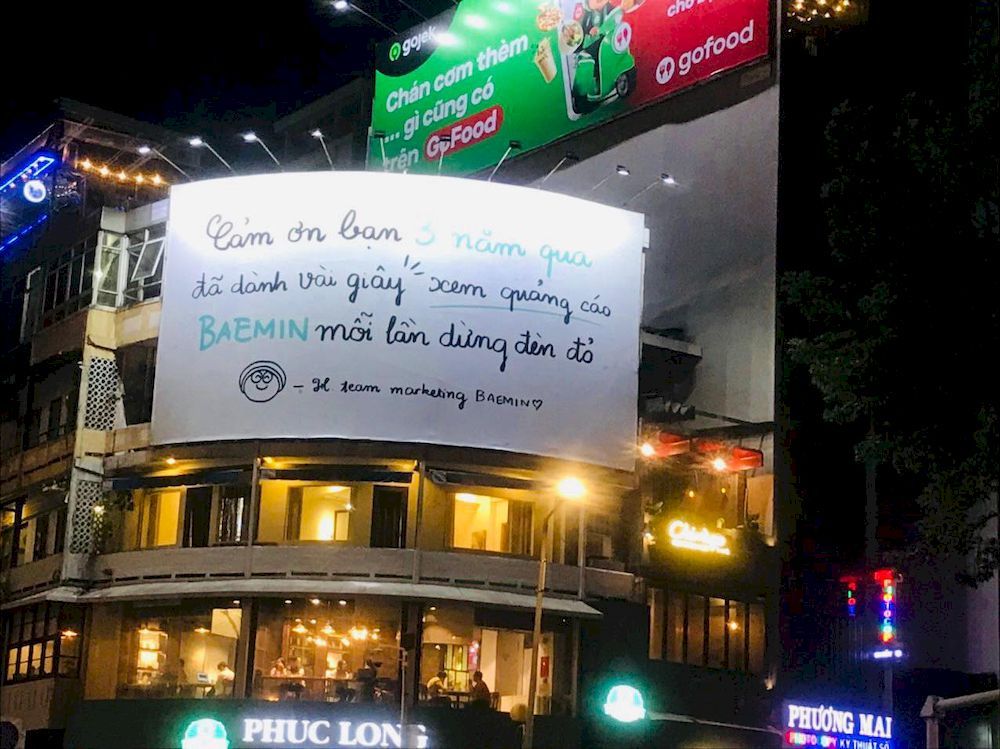 gojek
Chán cơm thèm
... gì cũng có
trên GoFood
gofood
Cảm ơn bạn 3 năm qua
đã dành vài giây xem quảng cáo
BAEMIN mỗi lần dừng đèn đỏ
- team marketing BAEMIN♡
PHUC LONG
PHƯƠNG MAI
PHOTO COPY KỸ THUẬT SỐ